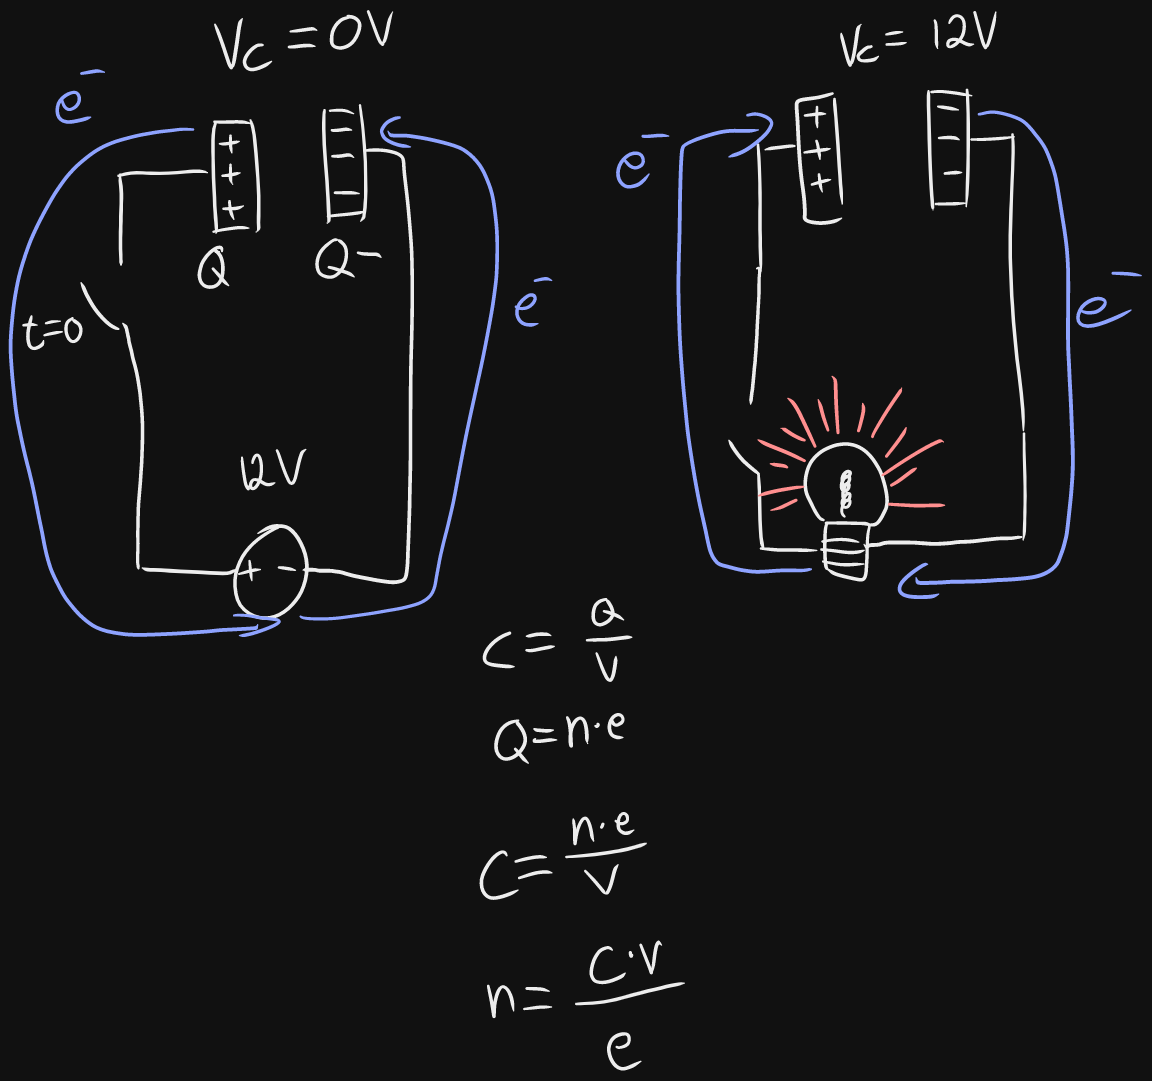 V_C = 0V
e⁻
+ + +
− − − −
Q
Q −
e⁻
t=0
12V
+ −
V_C = 12V
e⁻
+ + +
− − −
e⁻
C = Q/V
Q = n·e
C = n·e/V
n = C·V/e